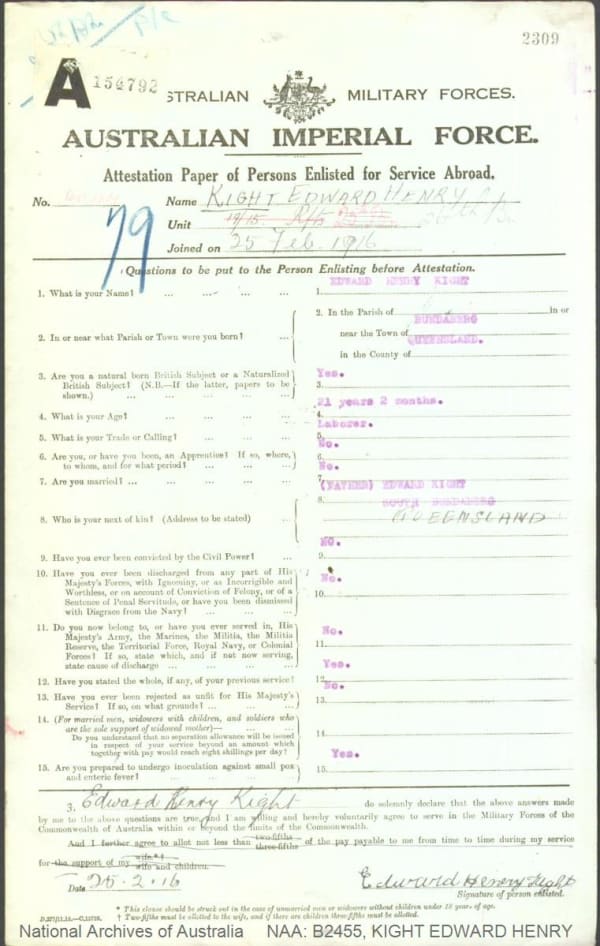 2309
A 154792
STRALIAN MILITARY FORCES.
AUSTRALIAN IMPERIAL FORCE.
Attestation Paper of Persons Enlisted for Service Abroad.
No. 79 Name KIGHT EDWARD HENRY
Unit 19/15
Joined on 25 Feb. 1916
Questions to be put to the Person Enlisting before Attestation.
1. What is your Name? ... ... ... ... 1. EDWARD HENRY KIGHT
2. In or near what Parish or Town were you born? ... 2. In the Parish of in or
near the Town of BUNDABERG
in the County of QUEENSLAND.
3. Are you a natural born British Subject or a Naturalized
British Subject? (N.B.—If the latter, papers to be
shown.) ... ... ... ... ... 3. Yes.
4. What is your Age? ... ... ... 4. 21 years 2 months.
5. What is your Trade or Calling? ... ... ... 5. Laborer.
6. Are you, or have you been, an Apprentice? If so, where,
to whom, and for what period? ... ... ... 6. No.
7. Are you married? ... ... ... ... ... 7. No.
8. Who is your next of kin? (Address to be stated) ... 8. (FATHER) EDWARD KIGHT
SOUTH BUNDABERG
QUEENSLAND
9. Have you ever been convicted by the Civil Power? ... 9. NO.
10. Have you ever been discharged from any part of His
Majesty's Forces, with Ignominy, or as Incorrigible and
Worthless, or on account of Conviction of Felony, or of a
Sentence of Penal Servitude, or have you been dismissed
with Disgrace from the Navy? ... ... ... 10. No.
11. Do you now belong to, or have you ever served in, His
Majesty's Army, the Marines, the Militia, the Militia
Reserve, the Territorial Force, Royal Navy, or Colonial
Forces? If so, state which, and if not now serving,
state cause of discharge ... ... ... ... 11. No.
12. Have you stated the whole, if any, of your previous service? 12. Yes.
13. Have you ever been rejected as unfit for His Majesty's
Service? If so, on what grounds? ... ... 13. No.
14. (For married men, widowers with children, and soldiers who
are the sole support of widowed mother)— ... ...
Do you understand that no separation allowance will be issued
in respect of your service beyond an amount which
together with pay would reach eight shillings per day? 14.
15. Are you prepared to undergo inoculation against small pox
and enteric fever? ... ... ... ... 15. Yes.
I, Edward Henry Kight do solemnly declare that the above answers made
by me to the above questions are true, and I am willing and hereby voluntarily agree to serve in the Military Forces of the
Commonwealth of Australia within or beyond the limits of the Commonwealth.
And I further agree to allot not less than two-fifths three-fifths of the pay payable to me from time to time during my service
for the support of my wife* † wife and children.
Date 25.2.16 Edward Henry Kight
Signature of person enlisted.
* This clause should be struck out in the case of unmarried men or widowers without children under 18 years of age.
† Two-fifths must be allotted to the wife, and if there are children three-fifths must be allotted.
National Archives of Australia NAA: B2455, KIGHT EDWARD HENRY